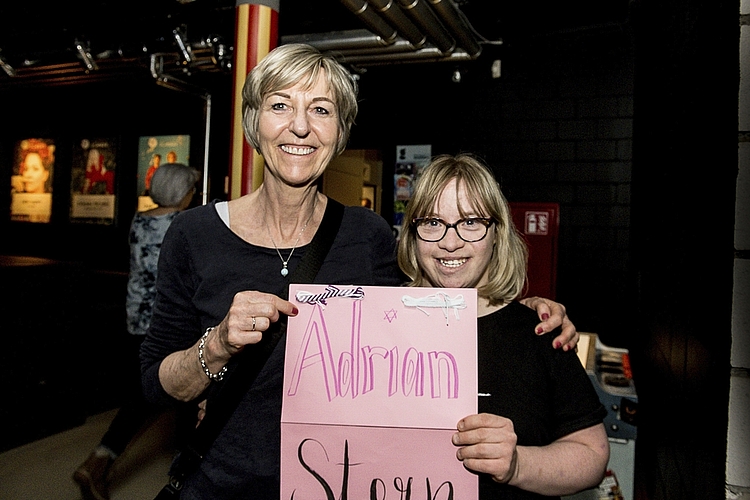 Adrian
Stern